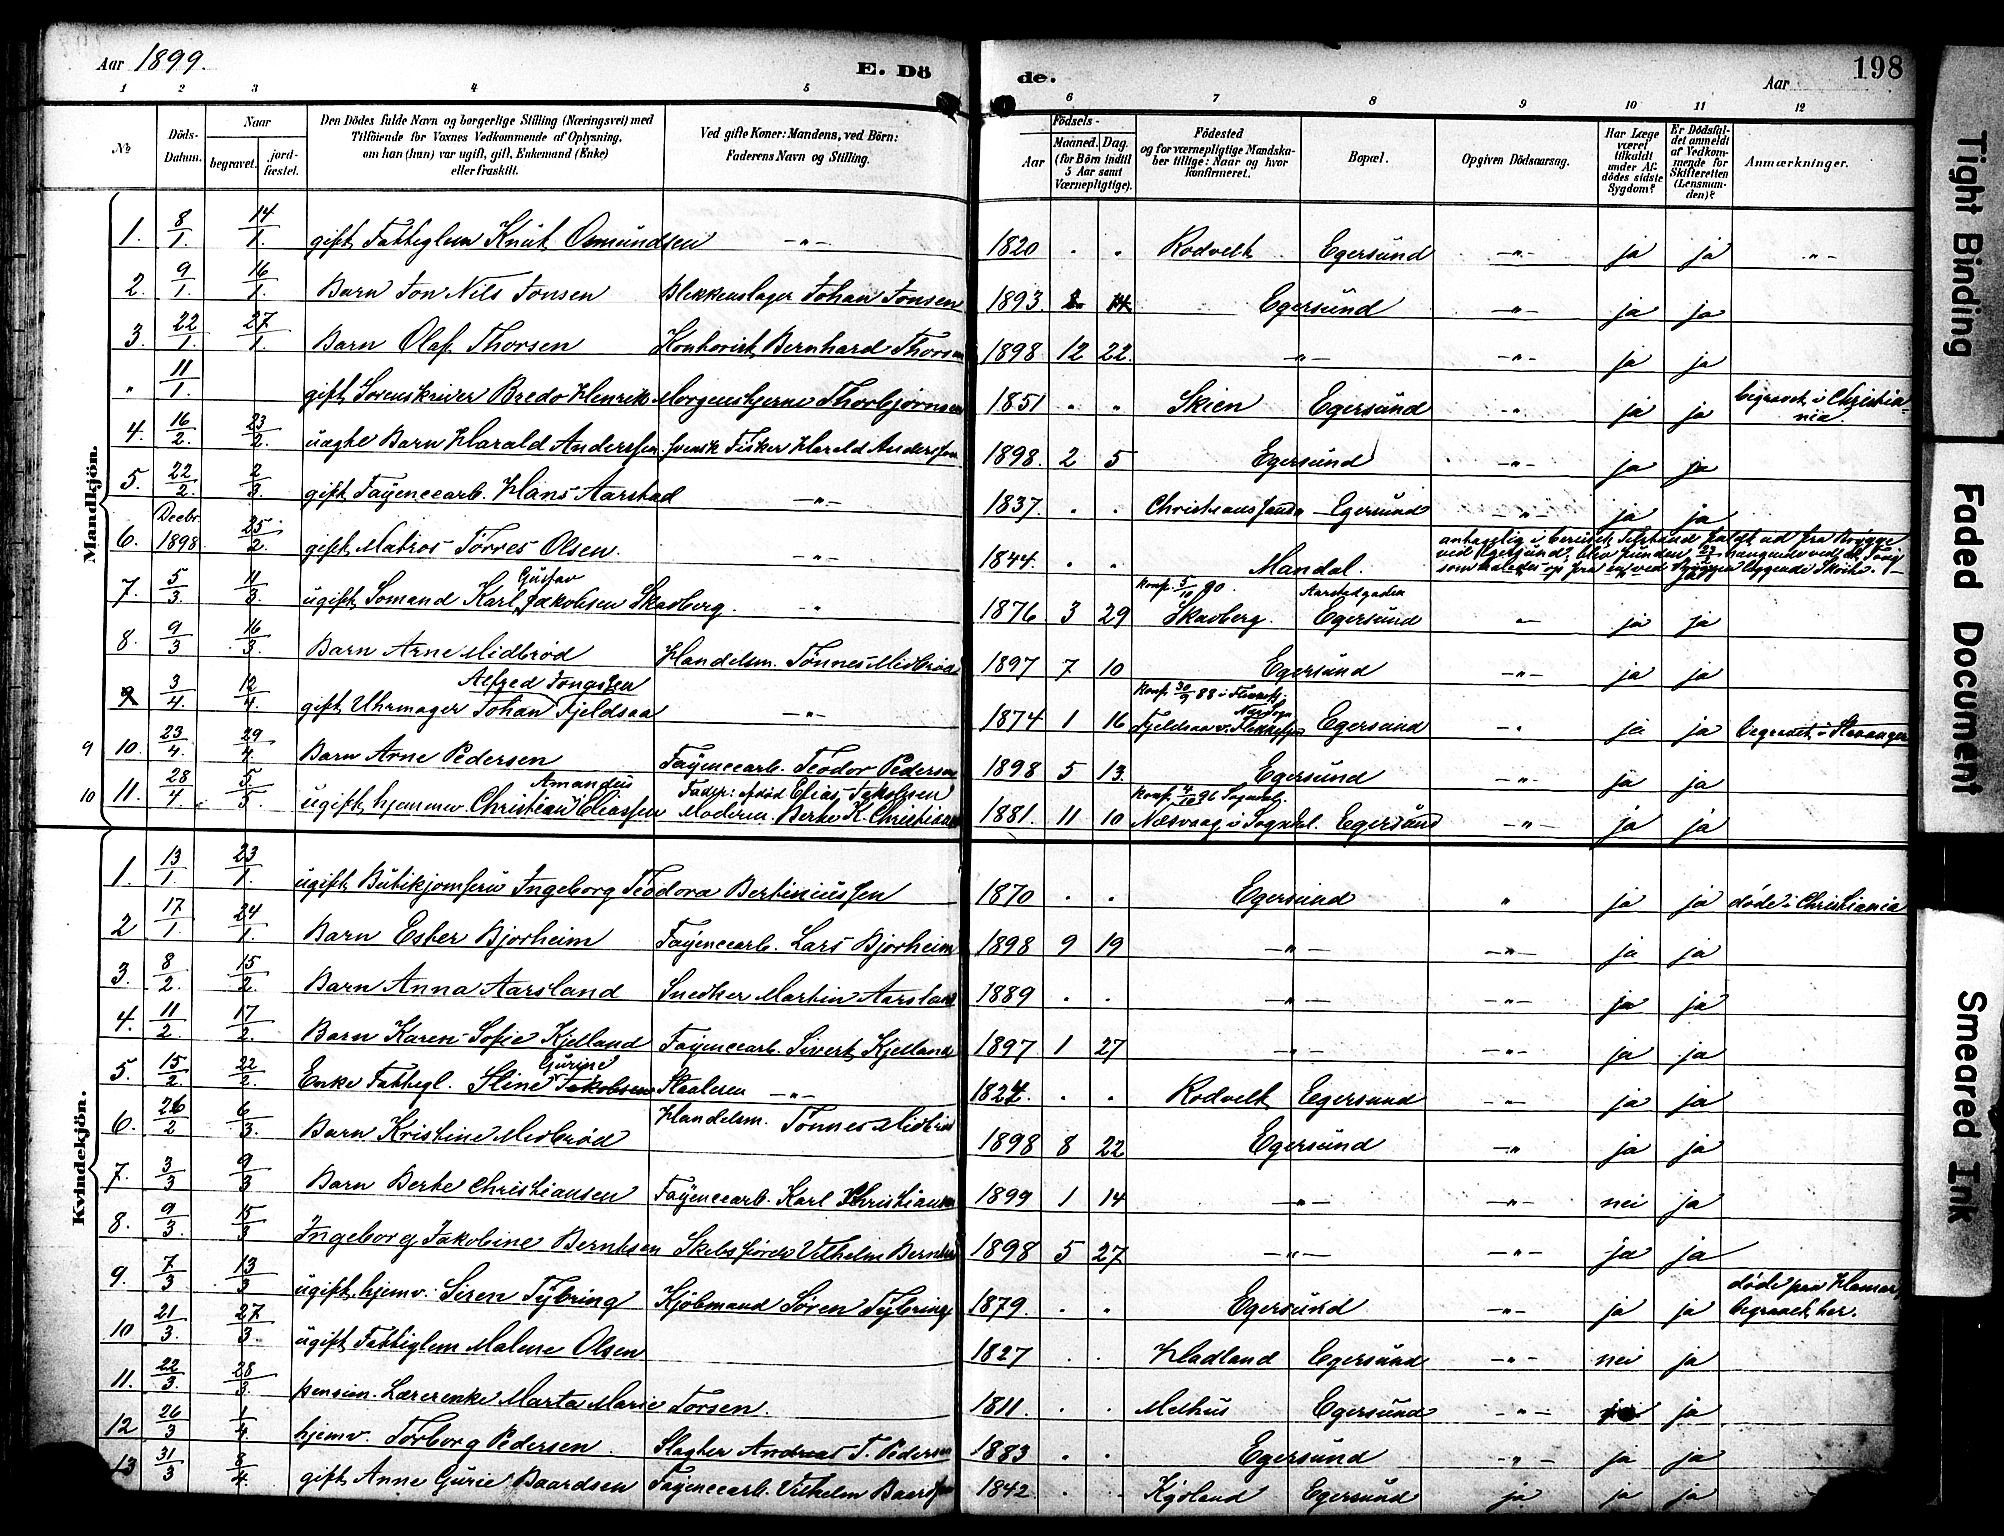 Aar 1899.
E. Dö
de.
Aar
198
1 2 3 4 5 6 7 8 9 10 11 12
No
Döds-Datum.
Naar
begravet.
jord-fæstet.
Den Dödes fulde Navn og borgerlige Stilling (Næringsvei) med
Tilföiende for Voxnes Vedkommende af Oplysning,
om han (hun) var ugift, gift, Enkemand (Enke)
eller fraskilt.
Ved gifte Koner: Mandens, ved Börn:
Faderens Navn og Stilling.
Födsels-
Aar
Maaned. Dag.
(for Börn indtil
5 Aar samt
Værnepligtige).
Födested
og for værnepligtige Mandska-
ber tillige: Naar og hvor
konfirmeret.
Bopæl.
Opgiven Dödsaarsag.
Har Læge
været
tilkaldt
under Af-
dödes sidste
Sygdom?
Er Dödsfal-
det anmeldt
af Vedkom-
mende for
Skifteretten
(Lensman-
den)?
Anmærkninger.
Mandkjön.
1. 8/1. 14/1. gift, Fattiglem Knut Omundsen -"- 1820 " " Rodvelt Egersund -"- ja ja -"-
2. 9/1. 16/1. Barn Jon Nils Jonsen Blikkenslager Johan Jonsen 1893 Egersund -"- ja ja
3. 22/1. 27/1. Barn Olaf Thorsen Kontorist Bernhard Thorsen 1898 12 22. -"- -"- ja ja
" 11/1 gift, Sorenskriver Bredo Henrik Morgenstjerne Thorbjørnsen 1851 " " Skien Egersund -"- ja ja begravet i Christia-
nia.
4. 16/2. 23/2. uægte Barn Harald Anderssen svensk Fisker Harald Anderssen 1898. 2 5 Egersund -"- ja ja
5. 22/2. 2/3. gift Fayencearb. Hans Aarstad -"- 1837. " " Christianssand Egersund -"- ja ja
6. Decbr. 1898 25/2. gift Matros Tørres Olsen. -"- 1844. " " Mandal. antagelig i beruset Tilstand faldt ud fra Brygge
ved Egersund, blev funden 27/1 hængende ved et Toug
som haledes op fra en ved Bryggen liggende Skøite.
7. 5/3. 11/3. ugift, Sømand Karl Gustav Jakobsen Skadberg. -"- 1876 3 29 konf. 5/10 90. Skadberg. Aarstadgaden Egersund -"- ja ja
8. 9/3 16/3. Barn Arne Midbrød Handelsm. Tønnes Midbrød 1897 7 10 Egersund -"- ja ja
9 3/4. 12/4. gift Uhrmager Johan Alfred Fjeldsaa -"- 1874 1 16 konf. 30/9 88 Egersund -"- ja ja begravet i Stavanger
9 10. 23/4. 29/4. Barn Arne Pedersen Fayencearb. Teodor Pedersen 1898 5 13. Egersund -"- ja ja
10 11. 28/4 5/5. ugift, hjemmev. Christian Amandus Eliassen Fader: afdød Elias Jakobsen
Moderen: Berte K. Christians 1881. 11 10 konf. 4/10 96 Sogndal. Næsvaag i Sogndal. Egersund -"- ja ja
Kvindekjön.
1. 13/1. 23/1. ugift, Butikjomfru Ingeborg Teodora Bertiniussen 1870 . . Egersund " ja ja døde i Christiania
2 17/1 24/1. Barn Ester Bjorheim Fayencearb. Lars Bjorheim 1898 9 19 -"- -"- ja ja
3. 8/2. 15/2. Barn Anna Aarsland Snedker Martin Aarsland 1889 . . -"- -"- ja ja
4. 11/2. 17/2. Barn Karen Sofie Kjelland Fayencearb. Sivert Kjelland 1897 1 27 -"- -"- ja ja
5. 15/2 22/2. Enke Fattigl. Stine Gurine Jakobsen Staalesen -"- 1824. . . Rodvelt Egersund -"- ja ja
6. 26/2 6/3. Barn Kristine Midbrød Handelsm. Tønnes Midbrød 1898 8 22 Egersund -"- ja ja
7. 3/3 9/3 Barn Berte Christiansen Fayencearb. Karl Christiansen 1899 1 14 -"- -"- nei ja
8. 9/3. 15/3 Ingeborg Jakobine Berntsen Skibsfører Vilhelm Berntsen 1898 5 27 -"- -"- ja ja
9. 7/3 13/3 ugift, hjemv. Siren Tybring Kjøbmand Søren Tybring 1879. . . Egersund -"- ja ja døde paa Hamar,
begravet her.
10 21/3. 27/3. ugift Fattiglem Malene Olsen 1827 . . Hadland Egersund -"- nei ja
11. 22/3. 28/3. pension. Lærerenke Marta Marie Torsen. 1811. . . Melhus Egersund -"- ja ja
12 26/3 1/4 hjemv. Torborg Pedersen. Slagter Andreas T. Pedersen 1883 . . Egersund -"- ja ja
13 31/3 8/4. gift Anne Gurie Baardsen Fayencearb. Vilhelm Baardsen 1842 . . Kydland Egersund ja ja ja
Tight Binding
Faded Document
Smeared Ink